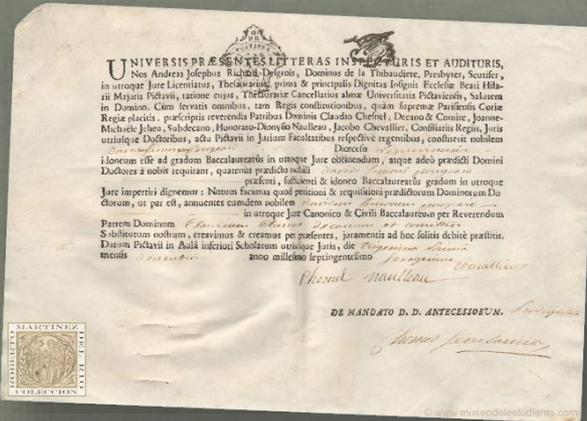 UNIVERSIS PRÆSENTES LITTERAS INSPECTURIS ET AUDITURIS,
Nos Andreas Josephus Richard Desgrois, Dominus de la Thibaudiere, Presbyter, Scutifer,
in utroque Jure Licentiatus, Thesaurarius, prima & principalis Dignitas Insignis Ecclesiæ Beati Hila-
rii Majoris Pictavii, ratione cujus, Thesaurariæ Cancellarius almæ Universitatis Pictaviensis, Salutem
in Domino. Cùm servatis omnibus, tam Regis constitutionibus, quàm supremæ Parisiensis Curiæ
Regiæ placitis, præscriptis reverendis Patribus Dominis Claudio Chesnel, Decano & Comite, Joanne-
Michaële Jeheu, Subdecano, Honorato-Dionysio Naulleau, Jacobo Chevallier, Consiliariis Regiis, Juris
utriusque Doctoribus, actu Pictavii in Jurium Facultatibus respectivè regentibus, constiterit nobilem
Diœcesis
idoneum esse ad gradum Baccalaureatûs in utroque Jure obtinendum, atque adeò prædicti Domini
Doctores à nobis requirant, quatenus prædicto nobili
præsenti, sufficienti & idoneo Baccalaureatûs gradum in utroque
Jure impertiri dignemur: Notum facimus quod petitioni & requisitioni prædictorum Dominorum Do-
ctorum, ut par est, annuentes eumdem nobilem
in utroque Jure Canonico & Civili Baccalaureum per Reverendum
Patrem Dominum decanum et comitem
Substitutum nostrum, creavimus & creamus per præsentes, juramentis ad hoc solitis debitè præstitis.
Datum Pictavii in Aulâ inferiori Scholarum utriusque Juris, die trigesima
mensis anno millesimo septingentesimo
Chesnel naulleau chevallier
DE MANDATO D. D. ANTECESSORUM.
ROBERTO MARTINEZ DEL RIO COLECCION
© www.museodelestudiante.com